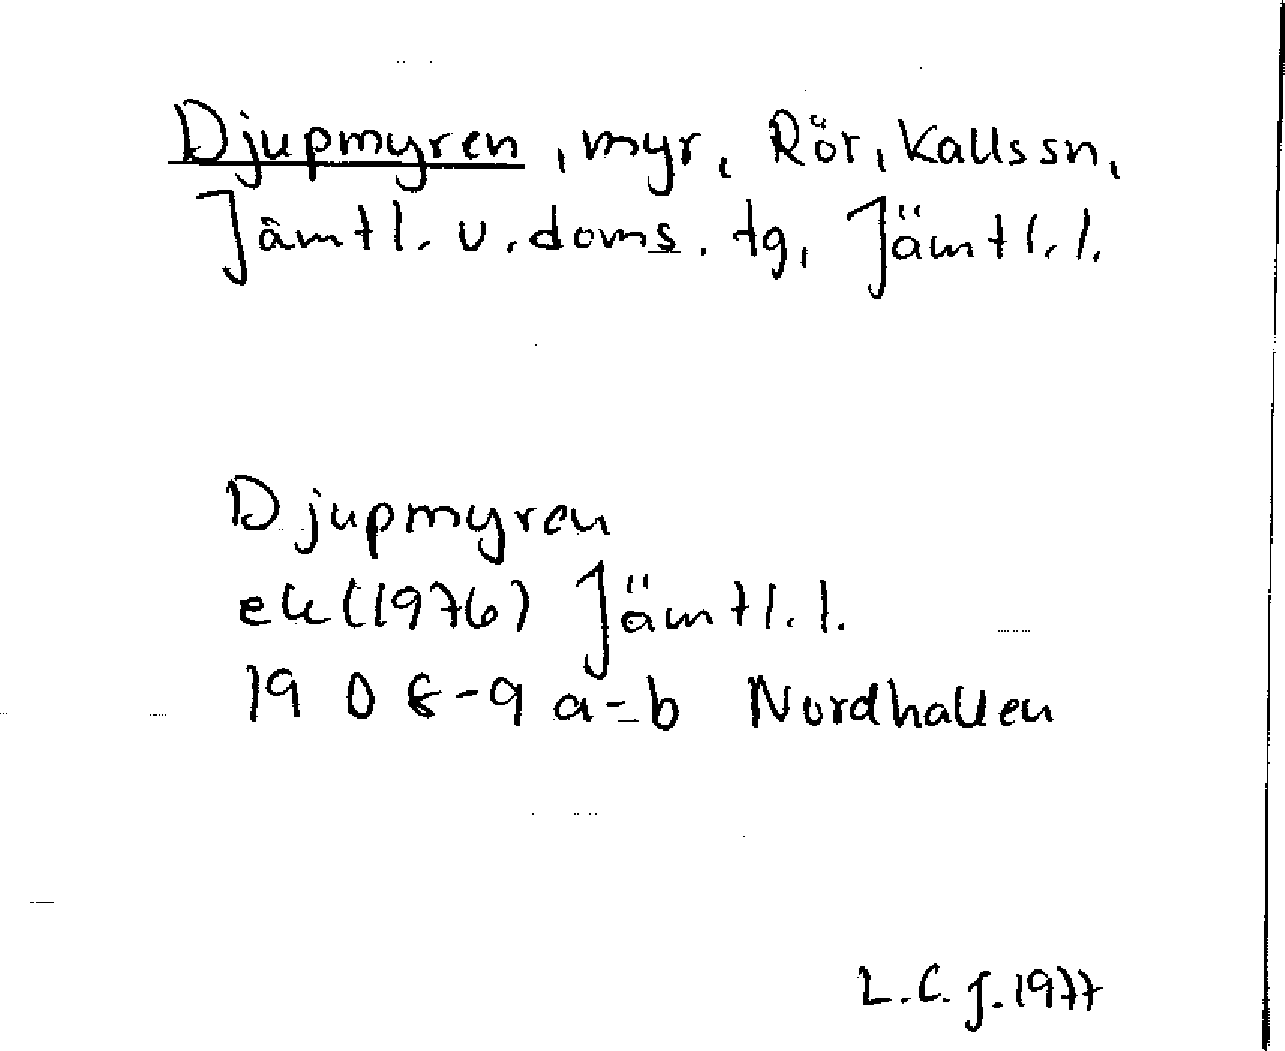 Djupmyren, myr, Rör, Kalls sn,
Jämtl. v. doms. tg, Jämtl. l.
Djupmyren
ek (1976) Jämtl. l.
19 D 8-9 a-b Nordhallen
L.C.J. 1977